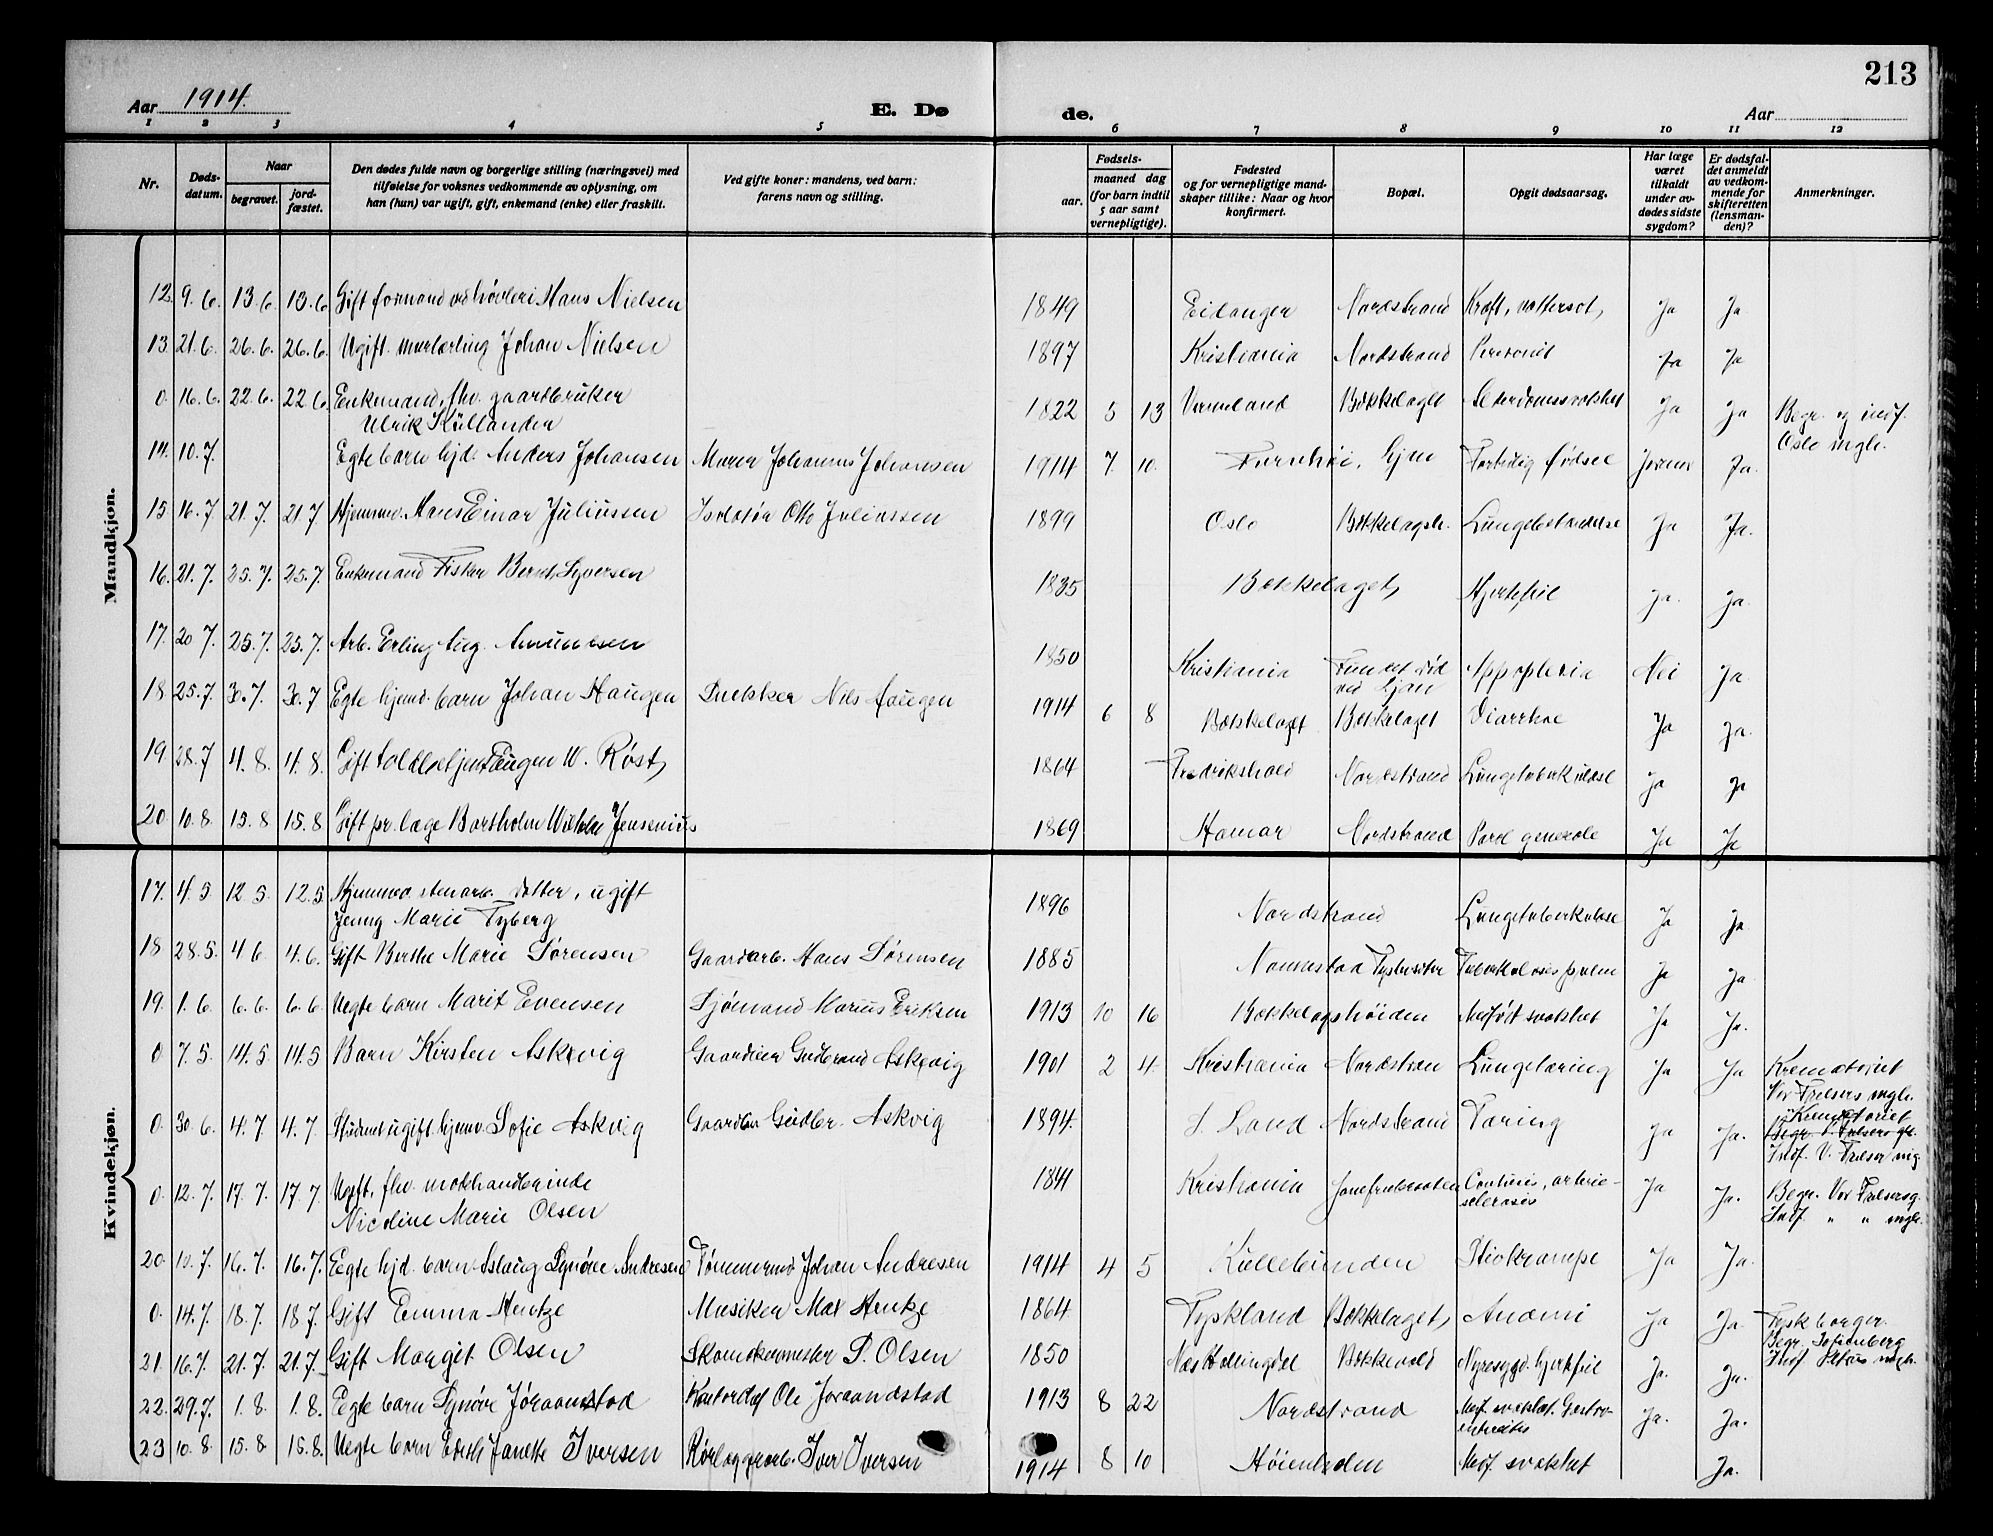 213
Aar 1914.
E. Døde.
Aar
1 2 3 4 5 6 7 8 9 10 11 12
Nr.
Dødsdatum.
Naar
begravet.
jordfæstet.
Den dødes fulde navn og borgerlige stilling (næringsvei) med tilføielse for voksnes vedkommende av oplysning, om han (hun) var ugift, gift, enkemand (enke) eller fraskilt.
Ved gifte koner: mandens, ved barn: farens navn og stilling.
Fødsels-
aar.
maaned dag
(for barn indtil 5 aar samt vernepligtige).
Fødested
og for vernepligtige mandskaper tillike: Naar og hvor konfirmert.
Bopæl.
Opgit dødsaarsag.
Har læge været tilkaldt under avdødes sidste sygdom?
Er dødsfaldet anmeldt av vedkommende for skifteretten (lensmanden)?
Anmerkninger.
Mandkjøn.
12 9.6. 13.6 13.6 Gift formand ved høvleri Hans Nielsen 1849 Eidanger Nordstrand Kræft, vattersot, Ja Ja
13 21.6. 26.6. 26.6. Ugift murlærling Johan Nielsen 1897 Kristiania Nordstrand Ja Ja
0. 16.6. 22.6. 22 6. Enkemand, fhv. gaardbruker
Ulrik Küllander 1822 5 13 Vermeland Bækkelaget Alderdomssvakhet Ja Ja Begr. og indf.
Oslo mgh.
14. 10.7. Egte barn hjd. Anders Johansen Murer Johannes Johansen 1914 7 10. Furuhøi, Ljan Fortidig fødsel Jormor Ja.
15 16.7 21.7. 21 7 Hjemmev. Hans Einar Juliussen Isolatør Otto Juliussen 1899 Oslo Bækkelagsh. Lungebetændelse Ja Ja.
16. 21.7. 25.7. 25.7. Enkemand Fisker Bernt Syversen 1835 Bækkelaget, Hjertefeil Ja. Ja.
17. 20 7. 25.7. 25.7. Arb. Erling Aug. Amundsen 1850 Kristiania Fundet død
ved Ljan Appoplexia Nei Ja.
18 25.7. 30.7. 30.7 Egte hjemd. barn Johan Haugen Snekker Nils Haugen 1914 6 8 Bækkelaget Bækkelaget Diarrhoe Ja Ja.
19. 28.7 4.8. 4.8. Gift toldbetjent Eugen W. Røst, 1864 Fredrikshald Nordstrand Lungetuberkulose Ja Ja
20. 10.8. 15.8 15.8 Gift pr. læge Bartholm Wilhelm Jensenius 1869 Hamar Nordstrand Paral generale Ja Ja
Kvindekjøn.
17. 4.5 12 5. 12.5. Hjemmev. stenarb. datter, ugift
Jenny Marie Tyberg 1896 Nordstrand Lungetuberkulose Ja Ja.
18 28.5. 4 6. 4.6. Gift Berthe Marie Sørensen Gaardarb. Hans Sørensen 1885 Ja Ja.
19. 1.6. 6.6. 6.6. Uegte barn Marit Evensen Sjømand Marius Eriksen 1913 10 16 Bækkelagshøiden Medfødt svakhet Ja Ja.
0 7.5. 14.5 14.5 Barn Kirsten Askevig Gaardeier Gudbrand Askevig 1901 2 4. Kristiania Nordstran Lungetæring Ja Ja Krematoriet
Vor Frelsers mgh.
0. 30 6. 4.7 4.7. Student ugift hjemv. Sofie Askvig Gaardbr. Gudbr. Askvig 1894. S. Land Nordstrand Tæring Ja Ja. Krematoriet
Begr. V. Frelsers gr.
Indf. V. Frelser mg.
0 12.7. 17 7. 17 7. Ugift, fhv. mothandlerinde
Nicoline Marie Olsen 1841 Kristiania Jomfrubraaten arterie-
sclerosis Ja Ja. Begr. Vor Frelsersg.
Indf. " " mgh.
20. 10.7. 16.7. 16.7. Egte hjd. barn Aslaug Synøve Andresen Tømmermd Johan Andresen 1914 4 5 Kullebunden Stivkrampe Ja Ja.
0. 14.7. 18.7. 18 7. Gift Emma Hentze Musiker Max Hentze 1864. Tyskland Bækkelaget, Anæmi Ja Ja Tysk borger.
Begr. Sofienberg
Indf. Petrus mgh.
21. 16.7. 21.7. 21.7. Gift Margit Olsen Skomakermester S. Olsen 1850 Næs Hallingdal Nyresygd. hjertefeil Ja. Ja.
22. 29.7. 1.8. 1.8. Egte barn Synøve Jøraandstad Kontorchef Ole Joraandstad 1913 8 22 Nordstrand Medf. svakhet. Gastro-
enteritis Ja. Ja.
23 10.8. 15.8 15.8. Uegte barn Edith Janette Iversen Rørlæggerarb. Iver Iversen 1914 8 10 Høienhalen Medf. svakhet Ja.